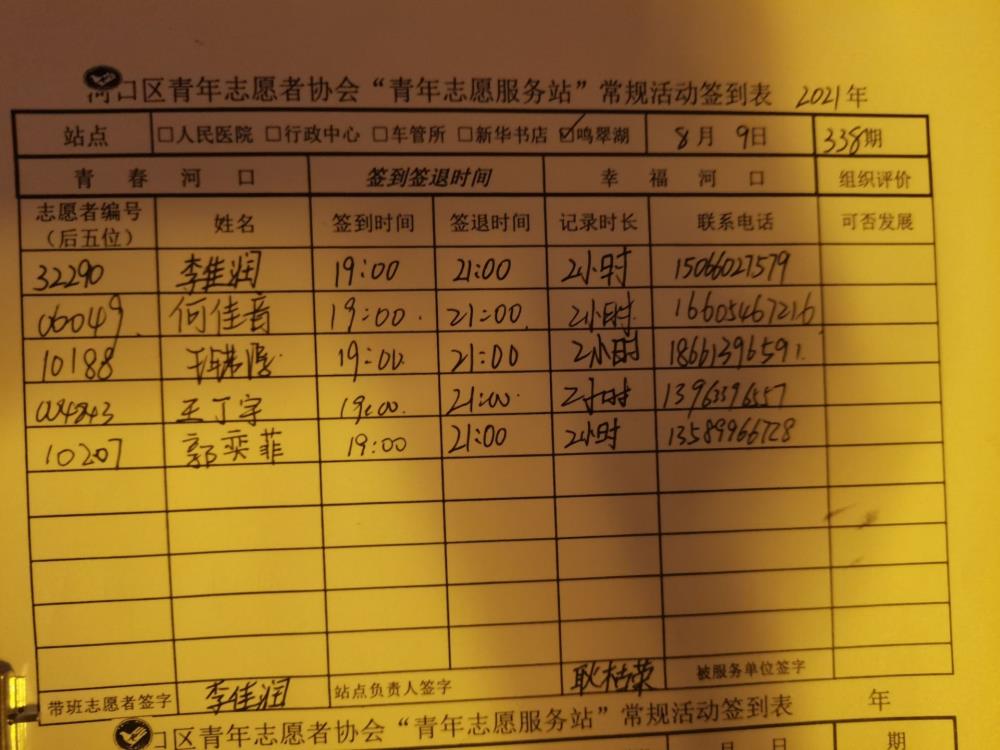 河口区青年志愿者协会“青年志愿服务站”常规活动签到表 2021年
站点 □人民医院 □行政中心 □车管所 □新华书店 ☑鸣翠湖 8月 9日 338期
青春河口 签到签退时间 幸福河口 组织评价
志愿者编号（后五位） 姓名 签到时间 签退时间 记录时长 联系电话 可否发展
32290 李佳润 19:00 21:00 2小时 15066027579
06049 何佳音 19:00 21:00 2小时 16605467216
10188 19:00 21:00 2小时 18661396591
王丁宇 19:00 21:00 2小时 13963396557
10207 郭奕菲 19:00 21:00 2小时 13589966728
带班志愿者签字 李佳润 站点负责人签字 被服务单位签字
口区青年志愿者协会“青年志愿服务站”常规活动签到表 年
月 日 期